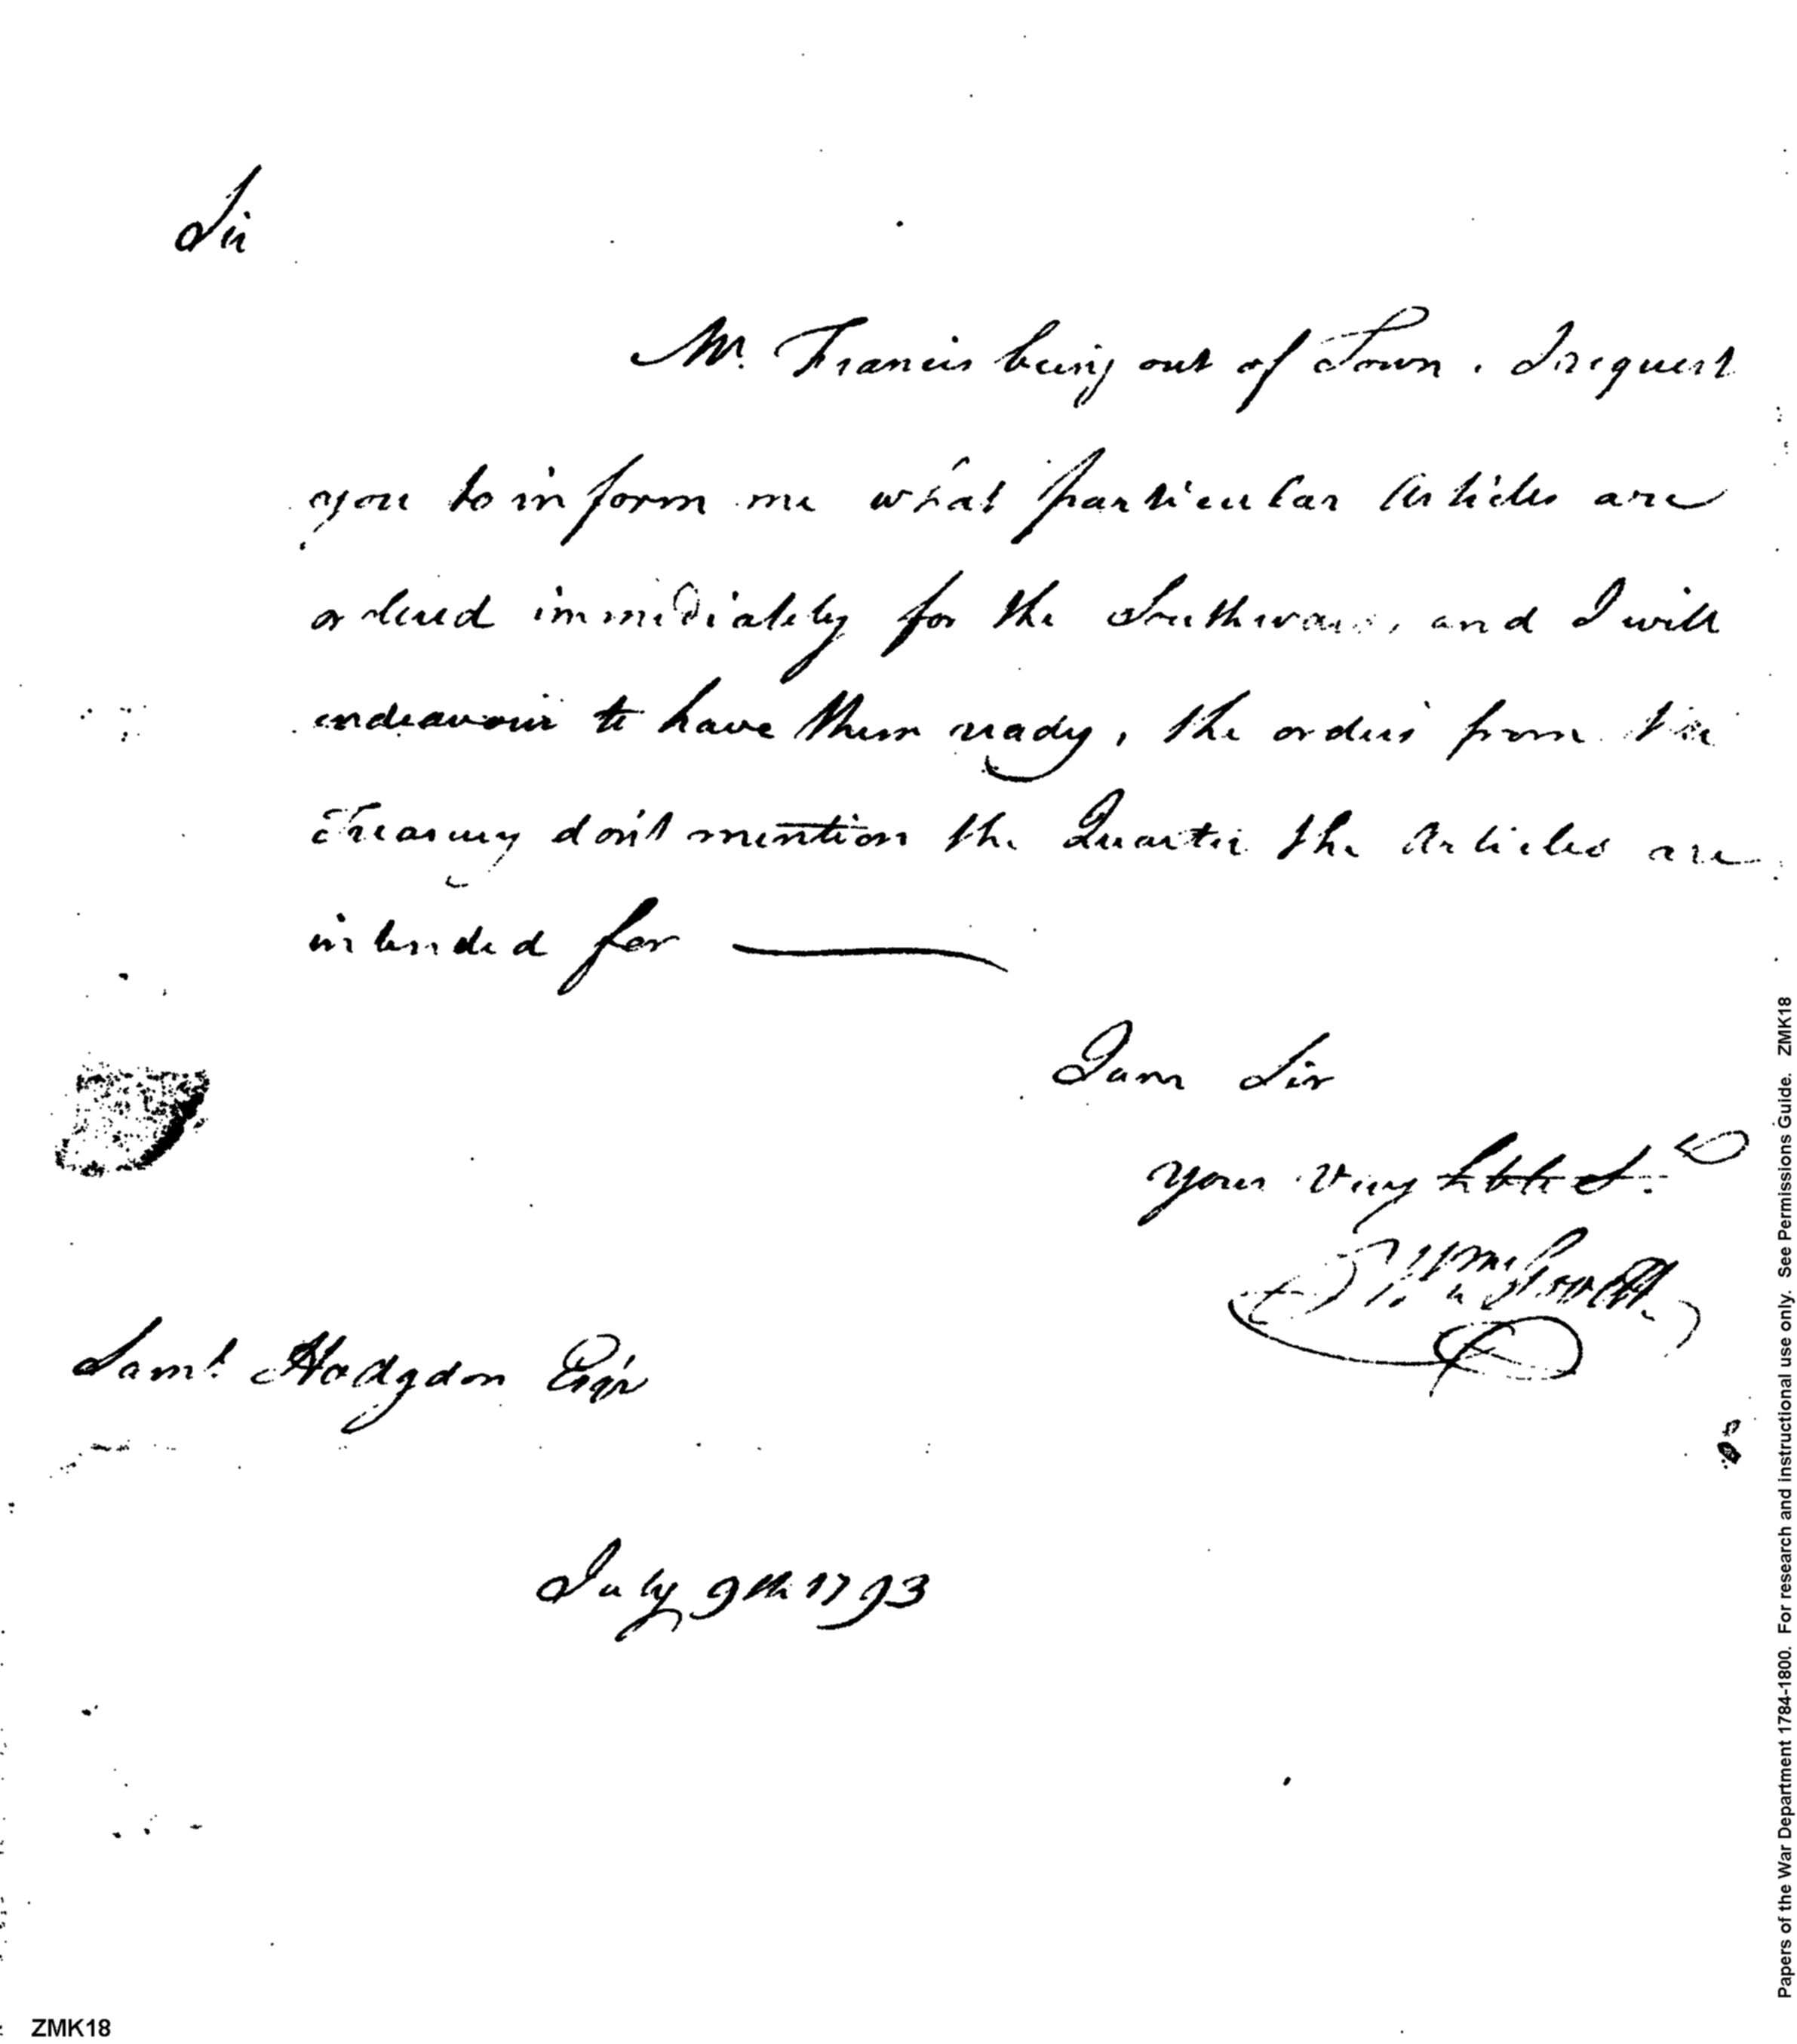 Sir
Mr. Francis being out of Town. I request
you to inform me what particular Articles are
ordered immediately for the Southward, and I will
endeavour to have them ready, the orders from the
Treasury don't mention the Quarter the Articles are
intended for
I am Sir
your Very hble St.
Saml. Hodgdon Esqr
July 9th 1793
Papers of the War Department 1784-1800. For research and instructional use only. See Permissions Guide. ZMK18
ZMK18